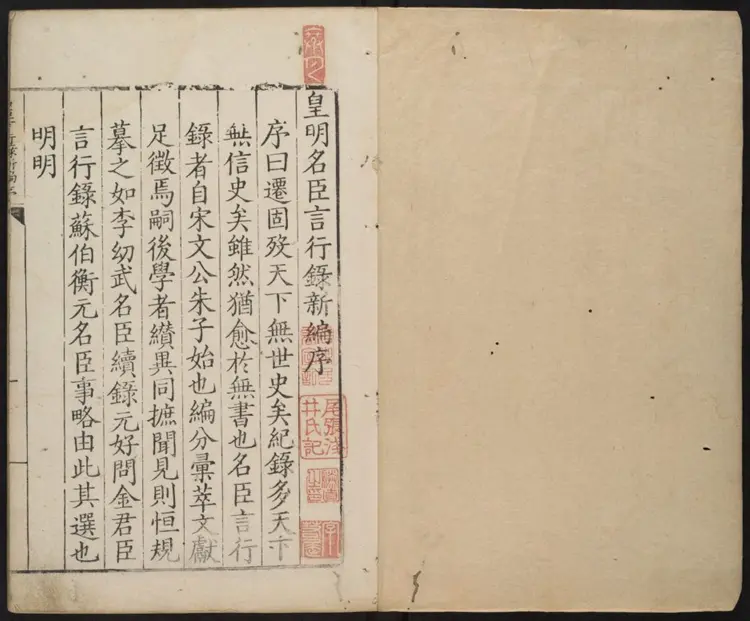 皇明名臣言行錄新編序
序曰遷固歿天下無世史矣紀錄多天下
無信史矣雖然猶愈於無書也名臣言行
錄者自宋文公朱子始也編分彙萃文獻
足徵焉嗣後學者纘異同摭聞見則恒規
摹之如李幼武名臣續錄元好問金君臣
言行錄蘇伯衡元名臣事略由此其選也
明明
尾張淺
井氏記